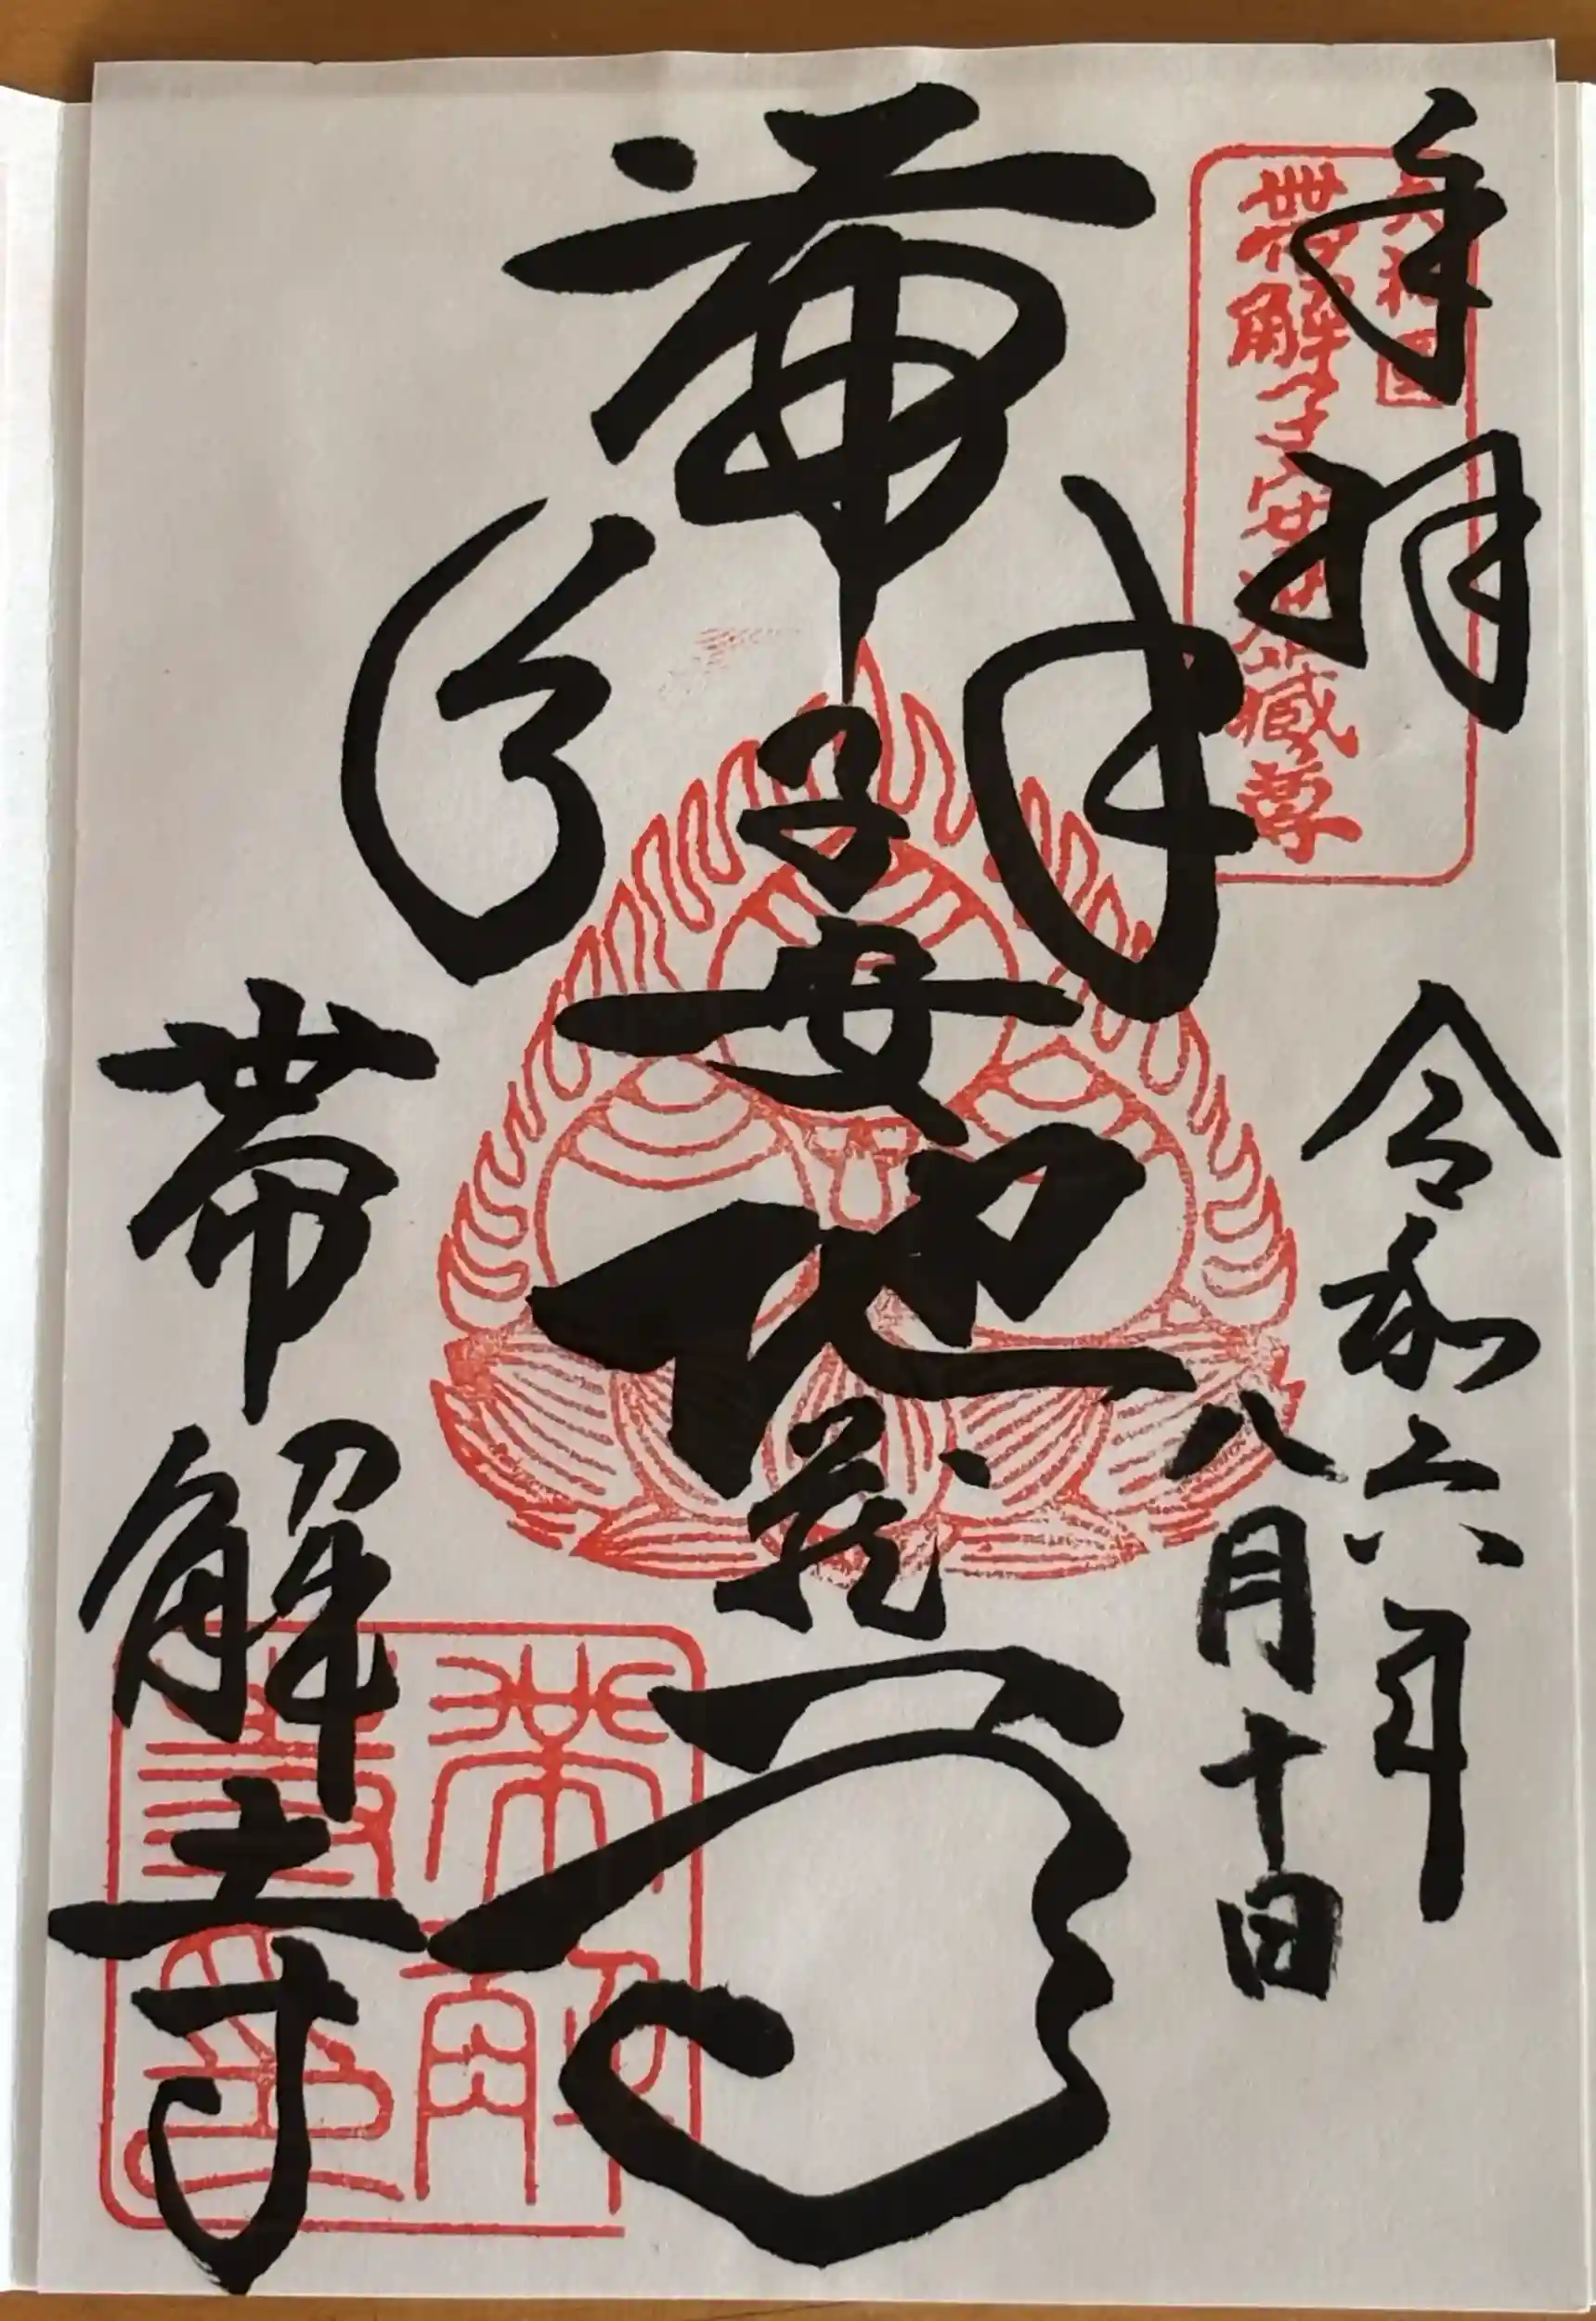 奉拝
大和国
帯解子安地蔵尊
令和六年
八月十日
帯解子安地蔵
帯解寺
帯解
寺印